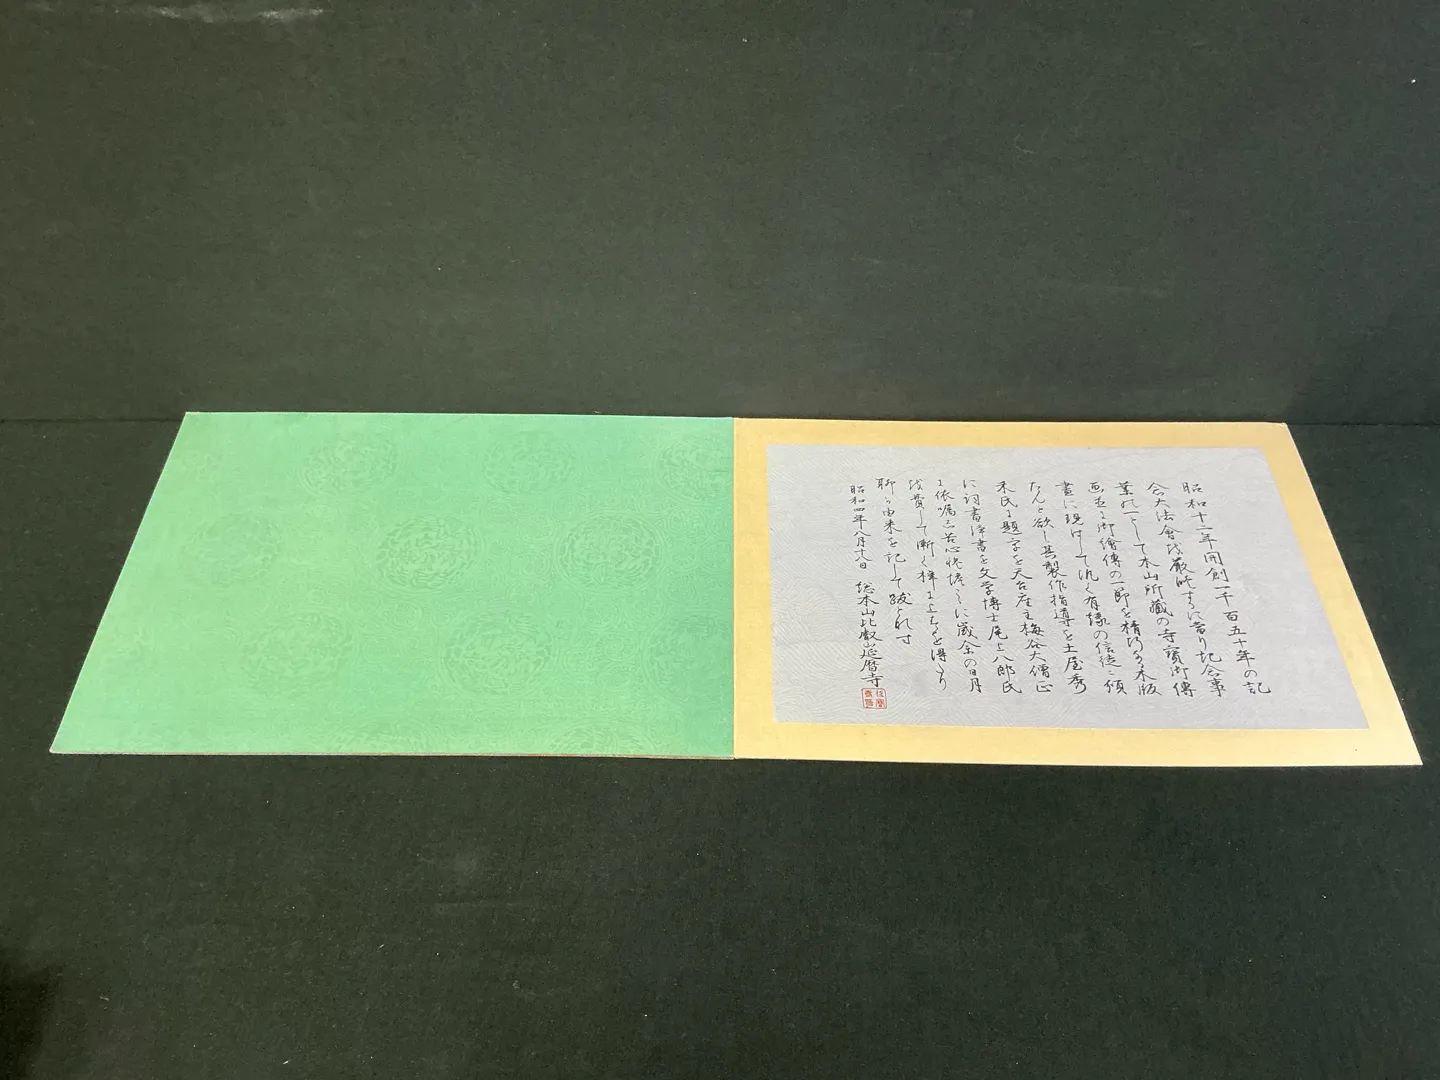 昭和十二年開創一千百五十年の記
念大法會を厳修するに當り記念事
業の一として本山所藏の寺寳御傳
画並に御繪傳の一節を精巧なる木版
畫に現はして汎く有縁の信徒に頒
たんと欲し其製作指導を土屋秀
禾氏に題字を天台座主梅谷大僧正
に詞書浄書を文学博士尾上八郎氏
に依嘱し苦心 に歳余の日月
を費して漸く梓に上するを得たり
聊か由来を記して跋となす
昭和四年八月十八日 総本山比叡山延暦寺